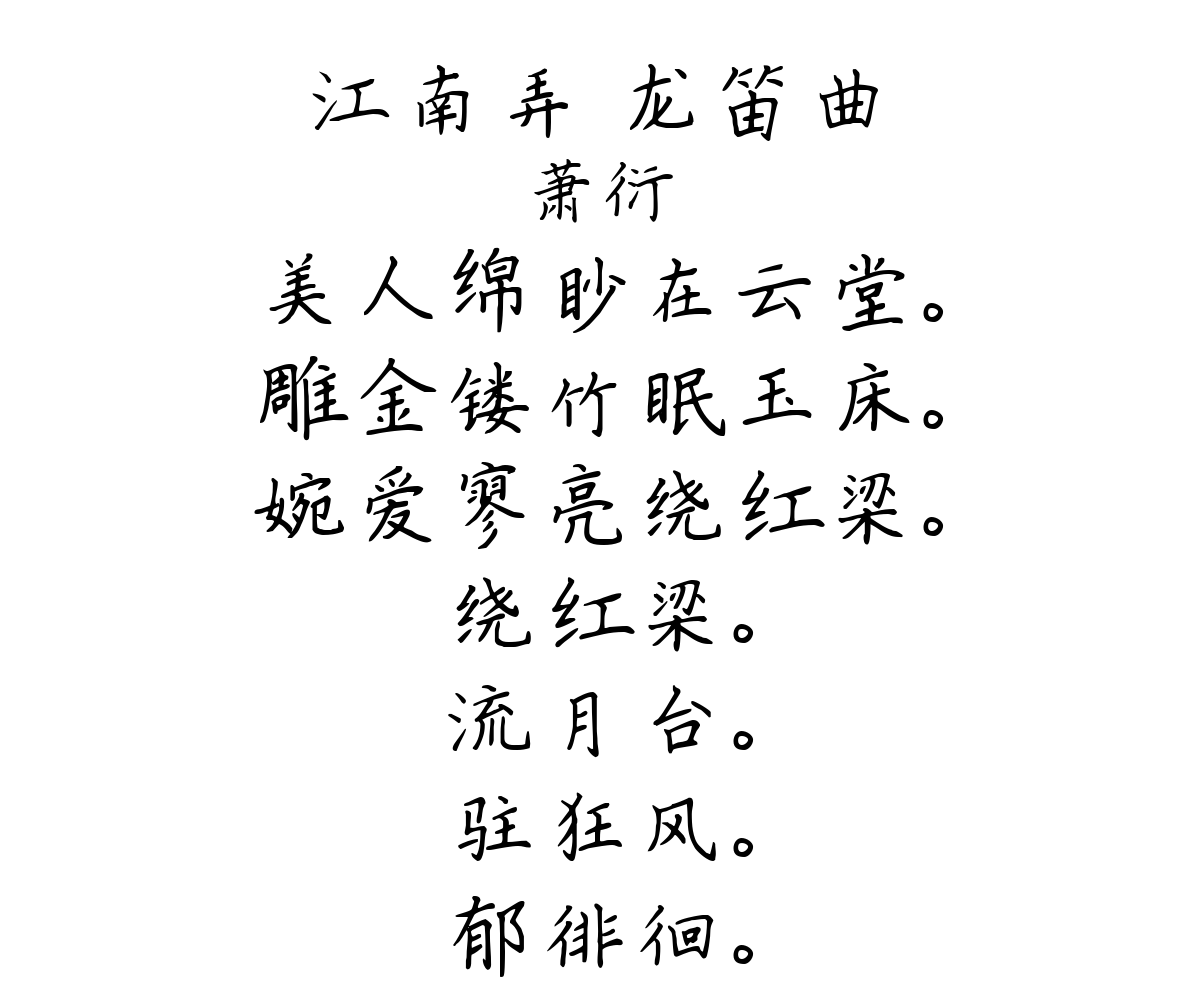 江南弄 龙笛曲
萧衍
美人绵眇在云堂。
雕金镂竹眠玉床。
婉爱寥亮绕红梁。
绕红梁。
流月台。
驻狂风。
郁徘徊。